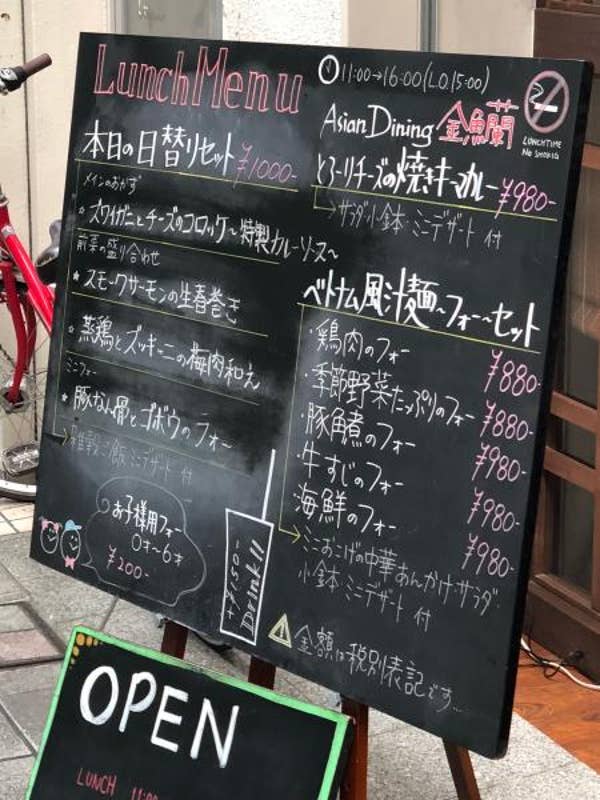 Lunch Menu
11:00→16:00(L.O.15:00)
Asian Dining 金魚蘭
LUNCHTIME
NO SMOKING
本日の日替りセット ¥1000-
メインのおかず
ズワイガニとチーズのコロッケ〜特製カレーソース〜
前菜の盛り合わせ
スモークサーモンの生春巻き
蒸鶏とズッキーニの梅肉和え
ミニフォー
豚なん骨とゴボウのフォ〜
→雑穀ご飯・ミニデザート付
お子様用フォー
0才〜6才
¥200-
+¥150-
Drink!!
とろ〜りチーズの焼きキーマカレー ¥980-
→サラダ・小鉢・ミニデザート 付
ベトナム風汁麺〜フォー〜セット
・鶏肉のフォー ¥880-
・季節野菜たっぷりのフォー ¥880-
・豚角煮のフォー ¥980-
・牛すじのフォー ¥980-
・海鮮のフォー ¥980-
→ミニおこげの中華あんかけ・サラダ
小鉢・ミニデザート 付
金額は税別表記です…
OPEN
LUNCH 11:00